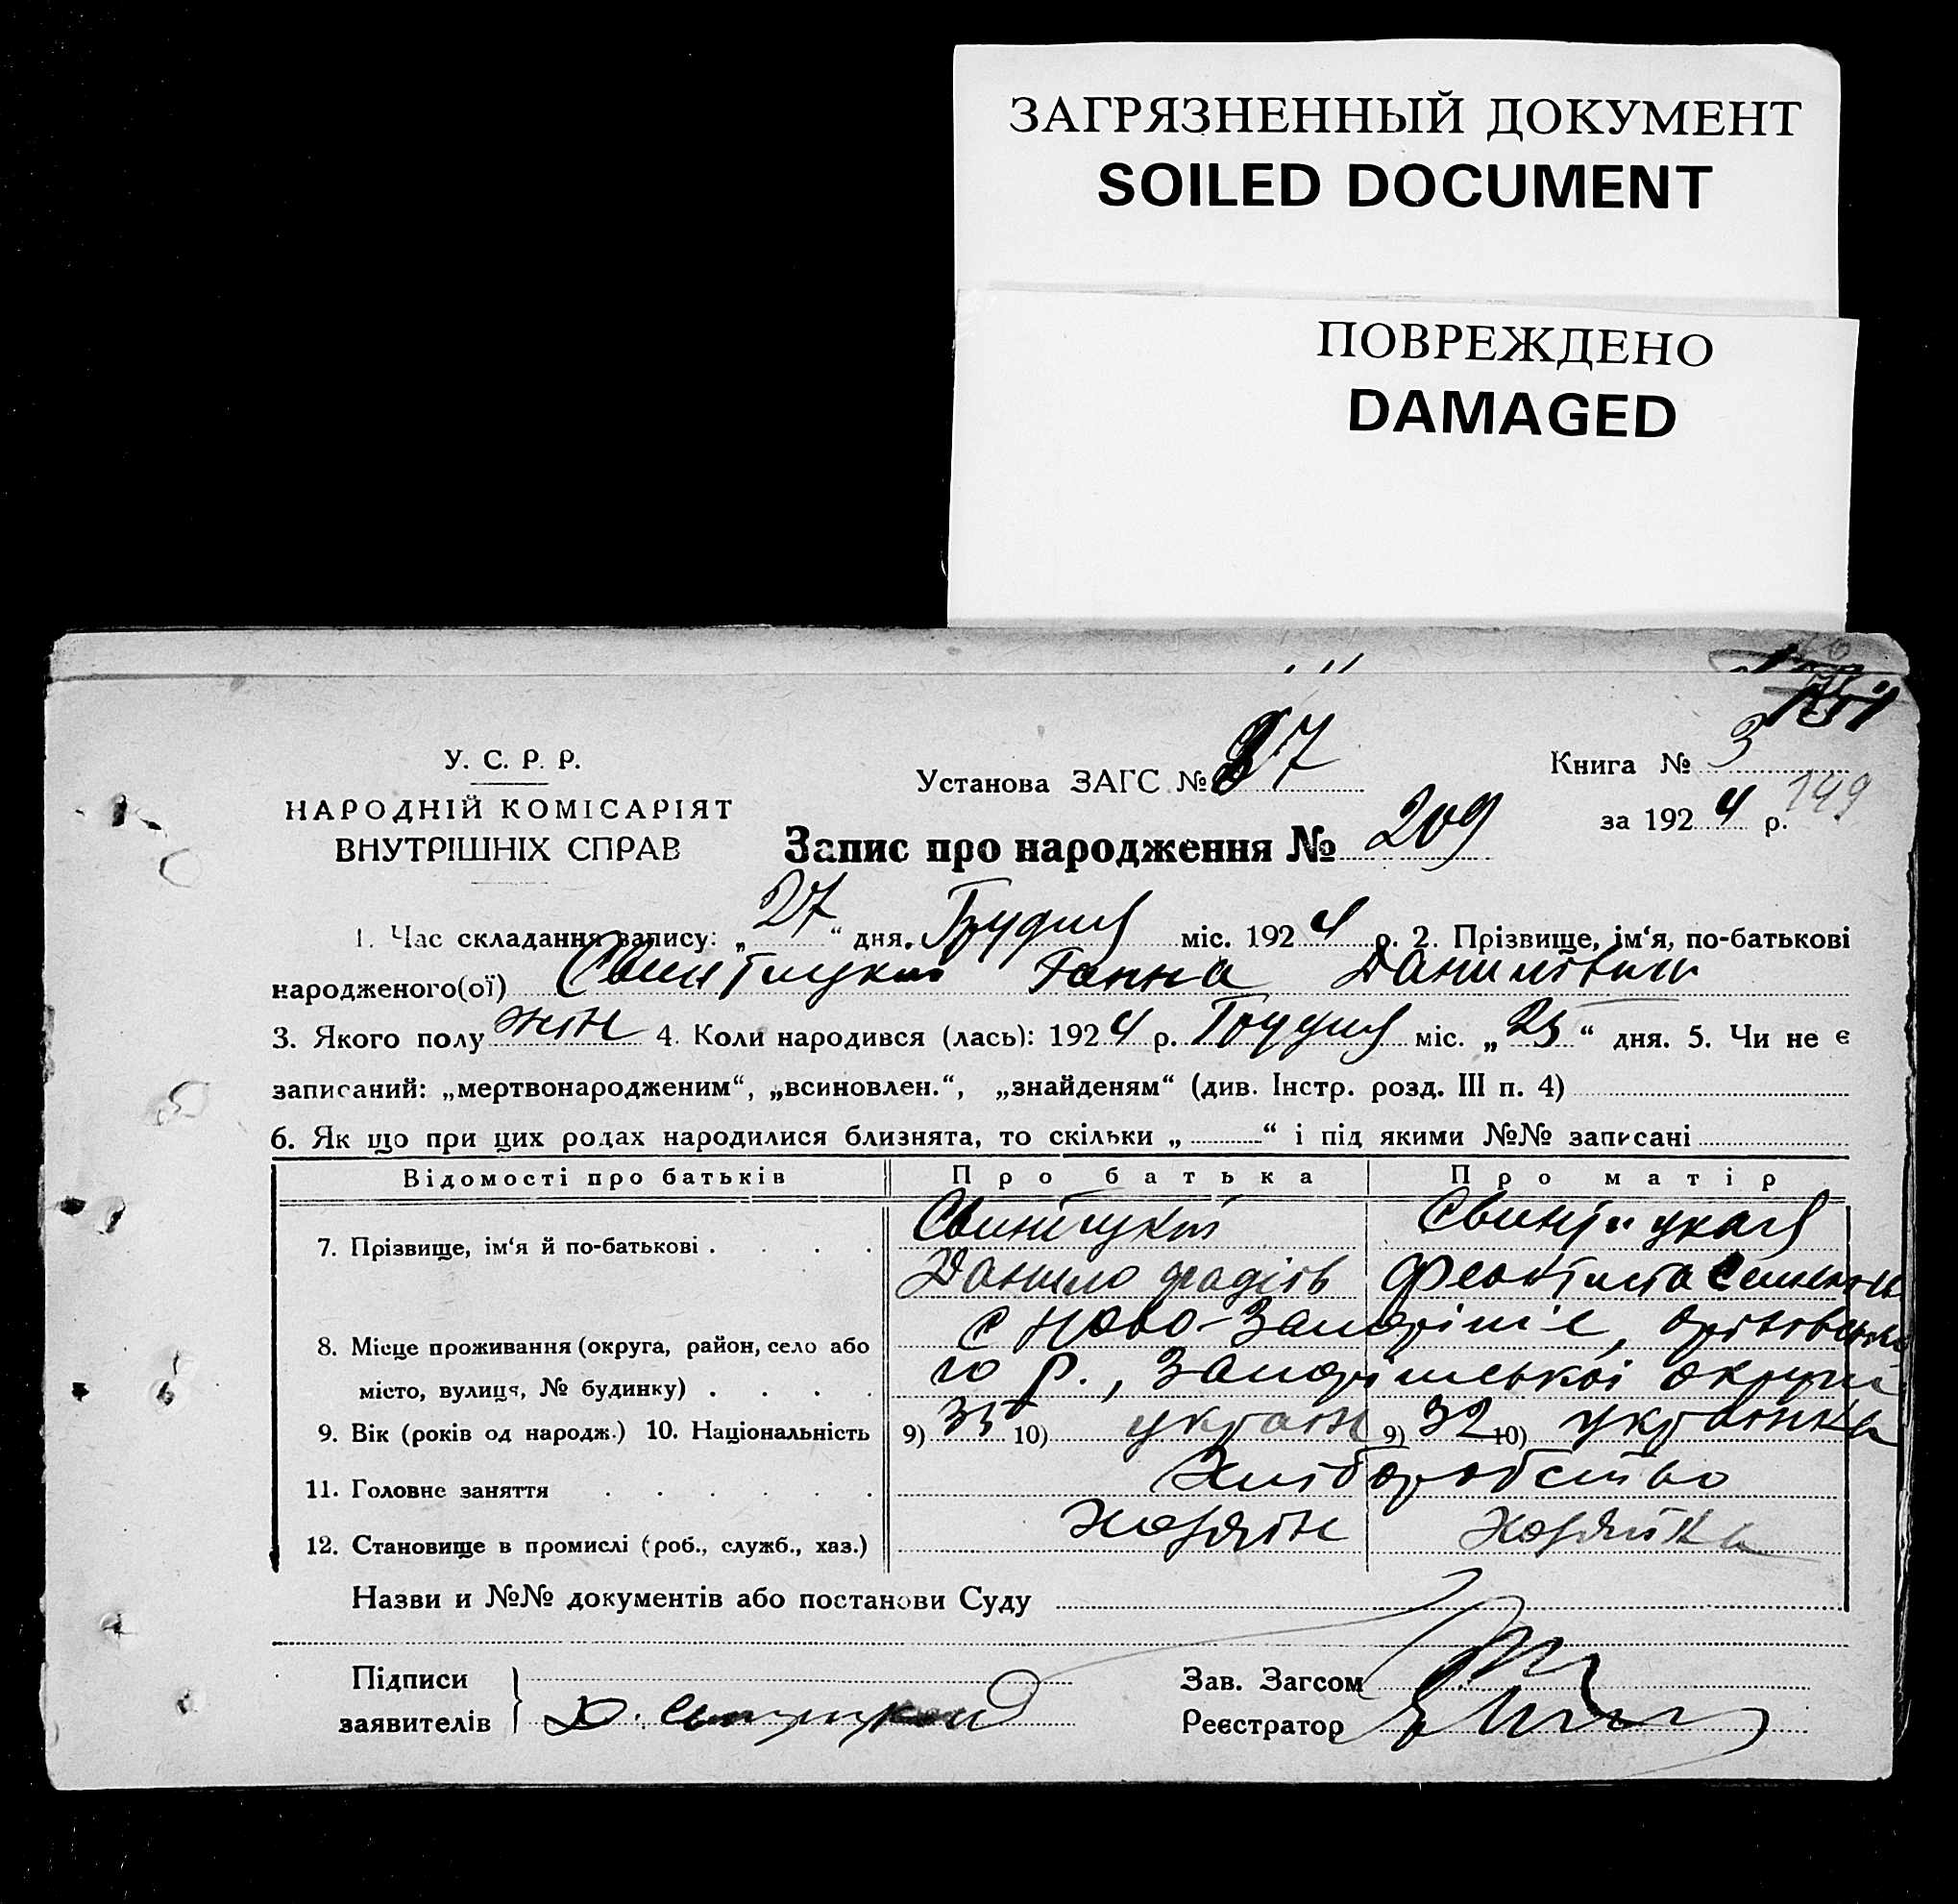 ЗАГРЯЗНЕННЫЙ ДОКУМЕНТ
SOILED DOCUMENT
ПОВРЕЖДЕНО
DAMAGED
У. С. Р. Р.
НАРОДНІЙ КОМІСАРІЯТ
ВНУТРІШНІХ СПРАВ
Установа ЗАГС № 37
Книга № 3
за 1924 р.
149
Запис про народження № 209
1. Час складання запису: „27“ дня Грудня міс. 1924 р. 2. Прізвище, ім‘я, по-батькові
народженого(ої) Ганна Данилівни
3. Якого полу жін 4. Коли народився (лась): 1924 р. Грудня міс. „25“ дня. 5. Чи не є
записаний: „мертвонародженим“, „всиновлен.“, „знайденям“ (див. Інстр. розд. III п. 4)
6. Як що при цих родах народилися близнята, то скільки „ “ і під якими №№ записані
Відомості про батьків Про батька Про матір
7. Прізвище, ім‘я й по-батькові Свинтицкая
Данило Феоктиста
8. Місце проживання (округа, район, село або с Ново-Запоріжжє,
місто, вулиця, № будинку) го р., Запоріжської округи
9. Вік (років од народж.) 10. Національність 9) 35 10) україн 9) 32 10) українка
11. Головне заняття Хліборобство
12. Становище в промислі (роб., служб., хаз.) хозяїн хозяйка
Назви и №№ документів або постанови Суду
Підписи
заявителів Д.
Зав. Загсом
Реєстратор